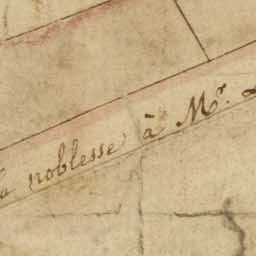 la noblesse à Mr.